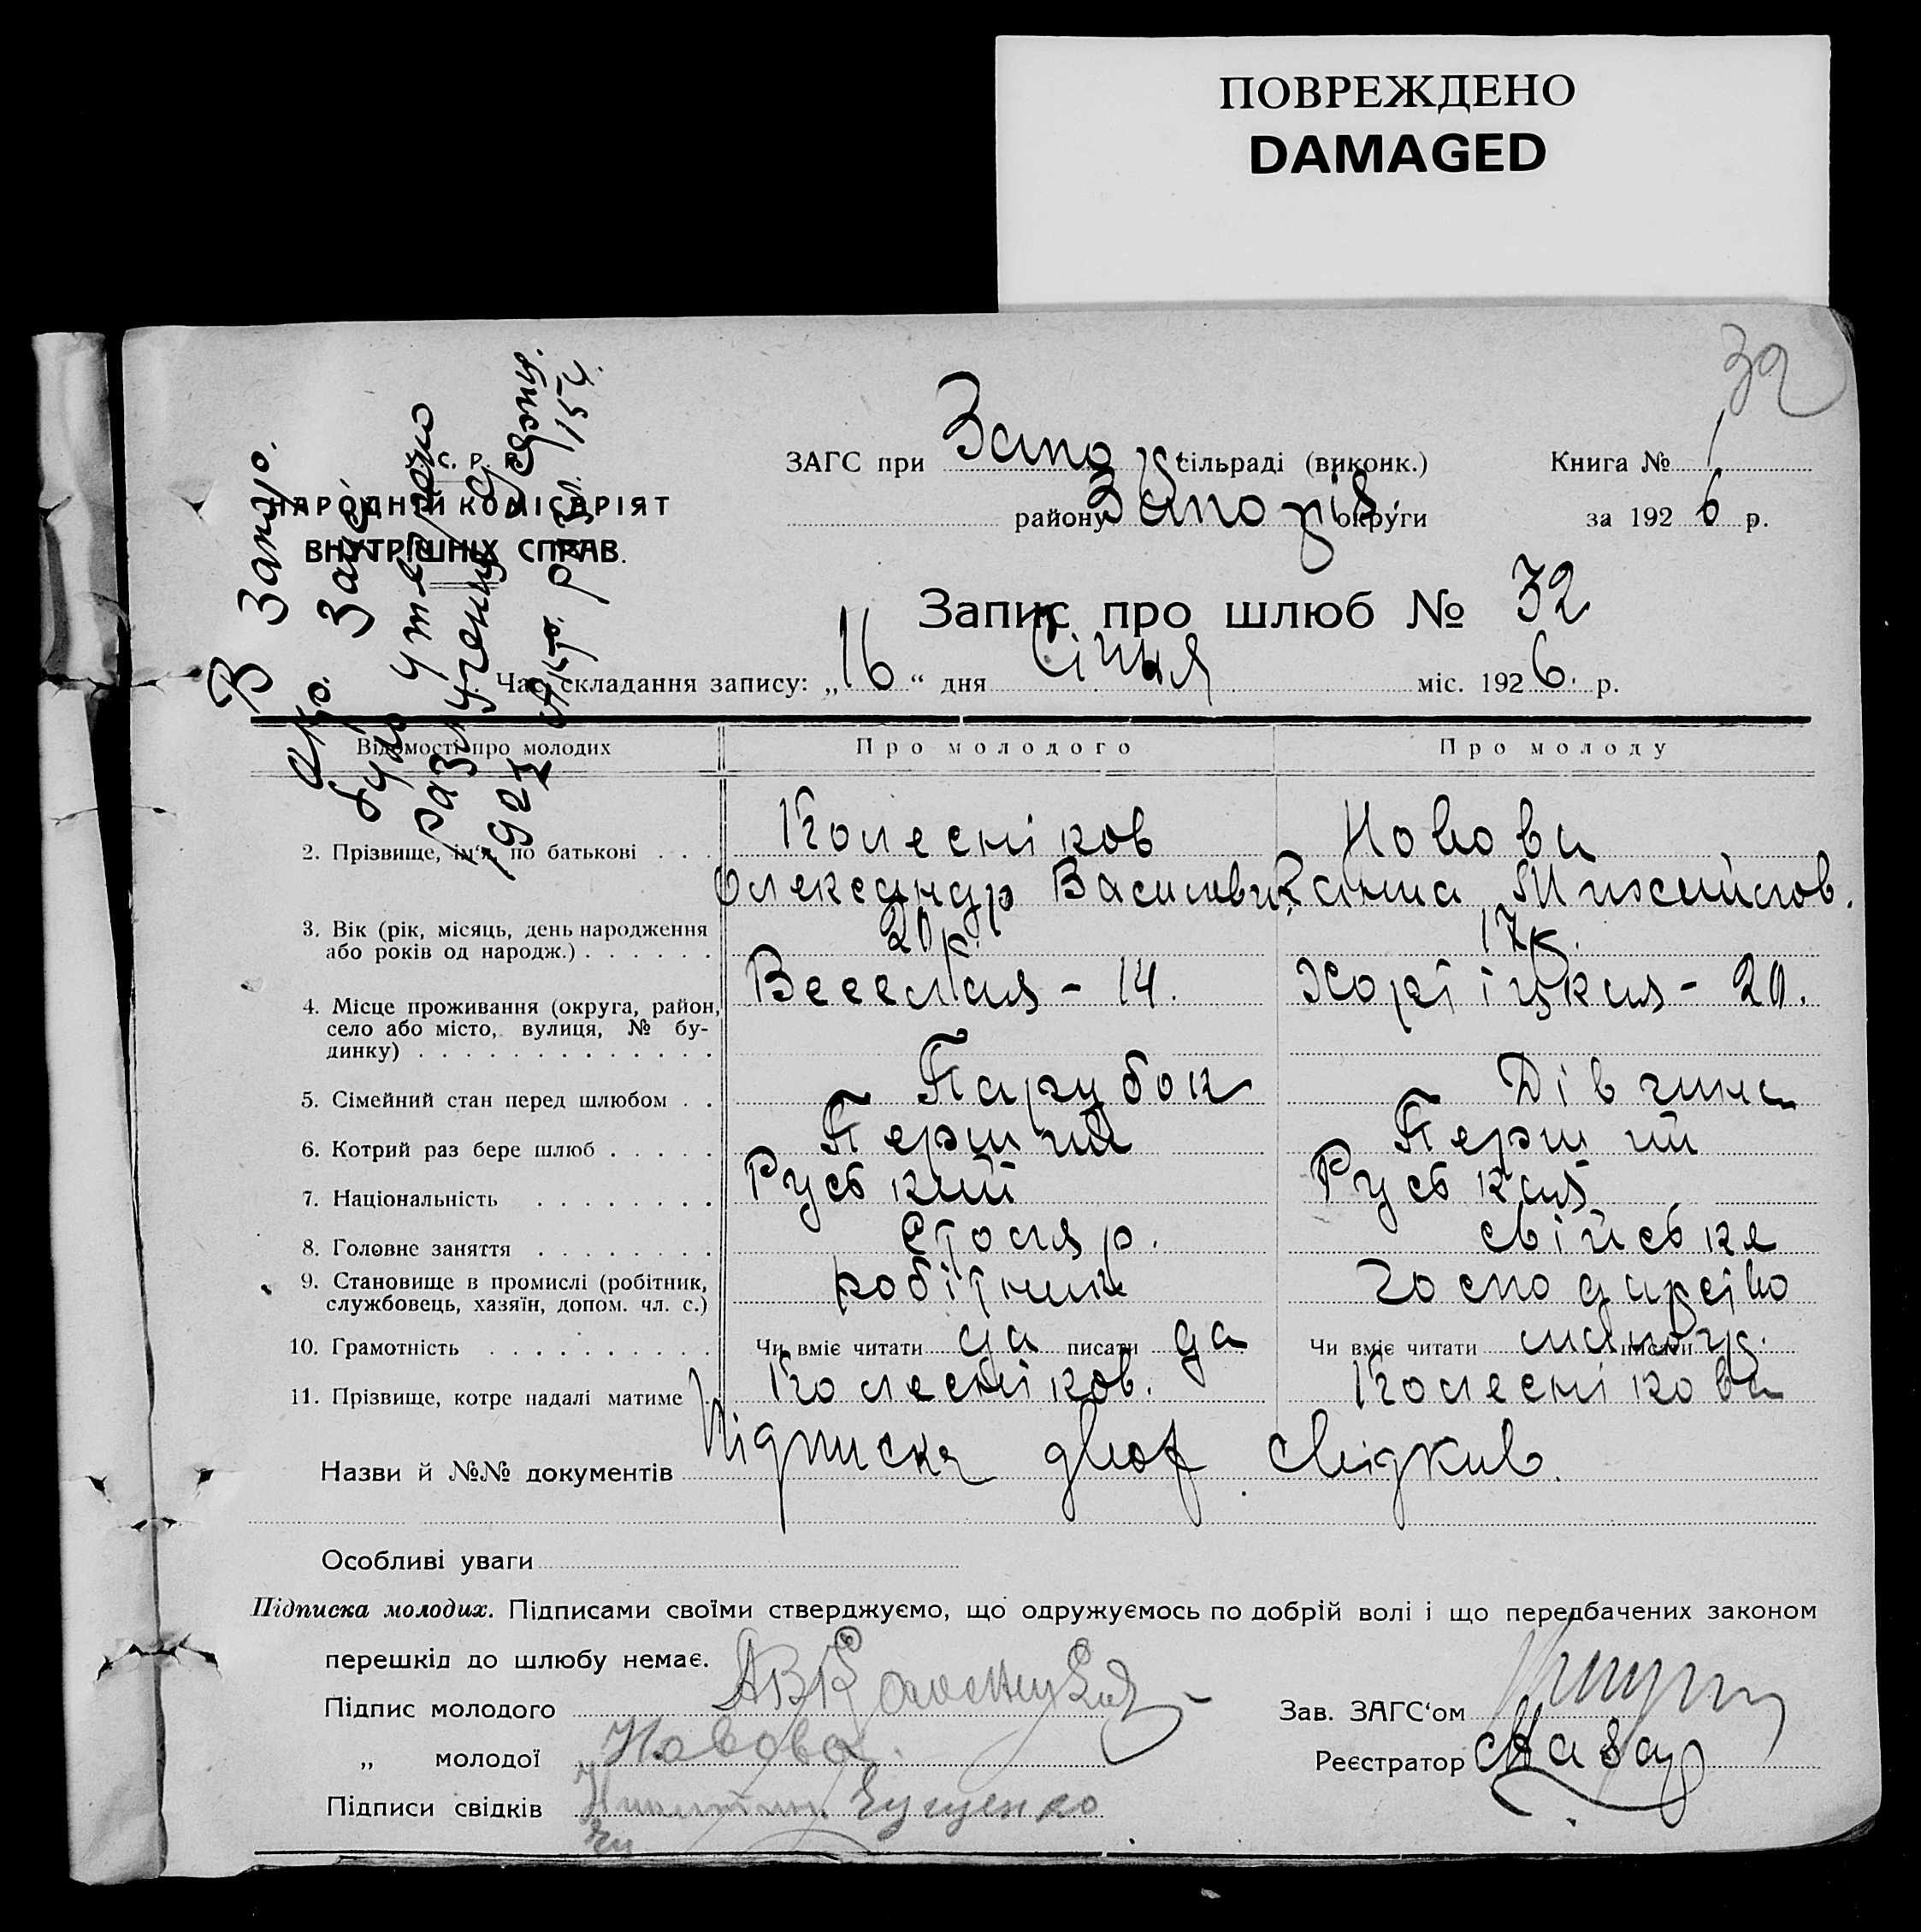 ПОВРЕЖДЕНО
DAMAGED
32
У. С. Р. Р.
НАРОДНІЙ КОМІСАРІЯТ
ВНУТРІШНІХ СПРАВ.
ЗАГС при Запо сільраді (виконк.) Книга № 1
району Запоріз округи за 1926 р.
Запис про шлюб № 32
Час складання запису: „16“ дня Січня міс. 1926. р.
Відомості про молодих Про молодого Про молоду
2. Прізвище, ім'я, по батькові . . . Колесніков Новова
Олександр Василевич Ганна Михайлов.
3. Вік (рік, місяць, день народження 20 р. 17 р.
або років од народж.) . . . . . .
4. Місце проживання (округа, район, Веселая - 14. Хортіцкая - 20.
село або місто, вулиця, № бу-
динку) . . . . . . . . . . . . .
5. Сімейний стан перед шлюбом . . Парубок Дівчина
6. Котрий раз бере шлюб . . . . . Перший Перший
7. Національність . . . . . . . Руський Руськая
8. Головне заняття . . . . . . . Столяр. свійське
9. Становище в промислі (робітник, робітник господарство
службовець, хазяїн, допом. чл. с.)
10. Грамотність . . . . . . . . . . Чи вміє читати да писати да Чи вміє читати писати
11. Прізвище, котре надалі матиме . Колесніков. Колеснікова
Назви й №№ документів Підписка двох свідків.
Особливі уваги
Підписка молодих. Підписами своїми стверджуємо, що одружуємось по добрій волі і що передбачених законом
перешкід до шлюбу немає.
Підпис молодого
Зав. ЗАГС'ом
„ молодої Новова.
Реєстратор
Підписи свідків